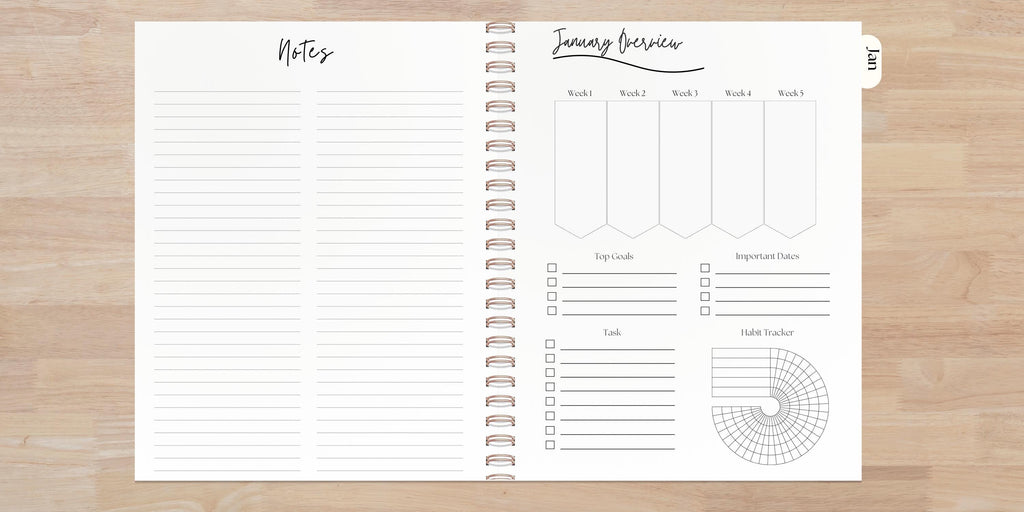 Notes
January Overview
Jan
Week 1 Week 2 Week 3 Week 4 Week 5
Top Goals
Important Dates
Task
Habit Tracker